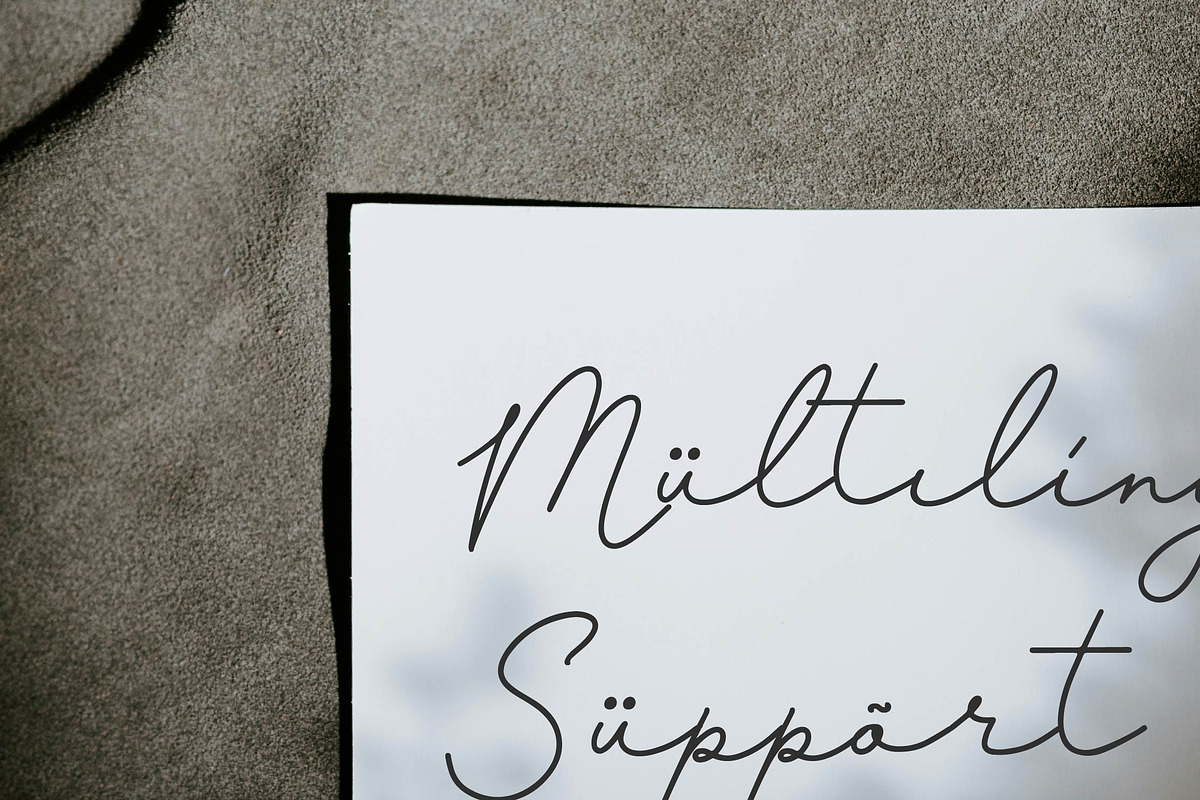 Mültılíng
Süppõrt